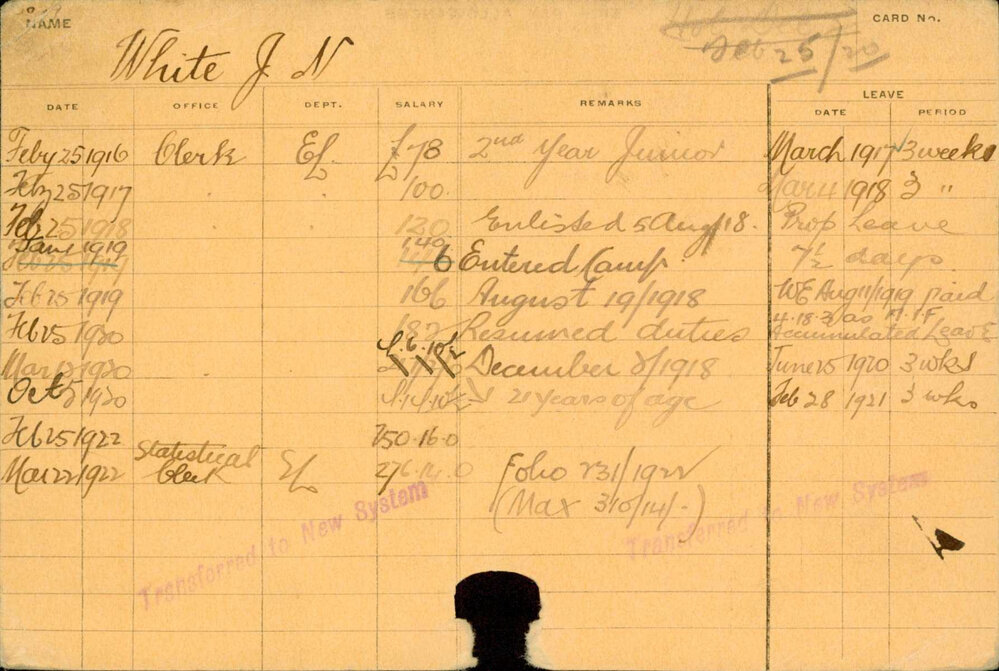 NAME
CARD No.
Feb 25/20
White J N
DATE OFFICE DEPT. SALARY REMARKS LEAVE
DATE PERIOD
Feby 25 1916 Clerk El. £78 2nd Year Junior March 1917 3 weeks
Feby 25 1917 100. 1918 3 "
Feb 25 1918 120 Enlisted 5 Aug/18. Prop Leave
Jany 1919 140 Entered Camp. 7½ days
Feb 25 1919 166 August 19/1918 WE Aug 11/1919 paid
4.18.3 as A.I.F.
Feb 25 1920 182 Resumed duties Accumulated Leave
Mar 1920 December 8/1918 June 25 1920 3 wks
Oct 1920 21 years of age Feb 28 1921 3 wks
Feb 25 1922 250.16.0
Mar 22 1922 Statistical Clerk El 276.14.0 Folio 231/1922
(Max 310/14/-)
Transferred to New System
Transferred to New System